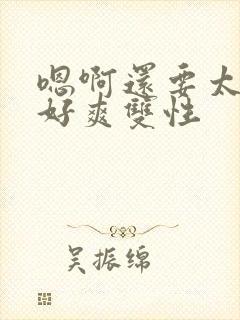 嗯啊還要太
好爽雙性
吴振绵